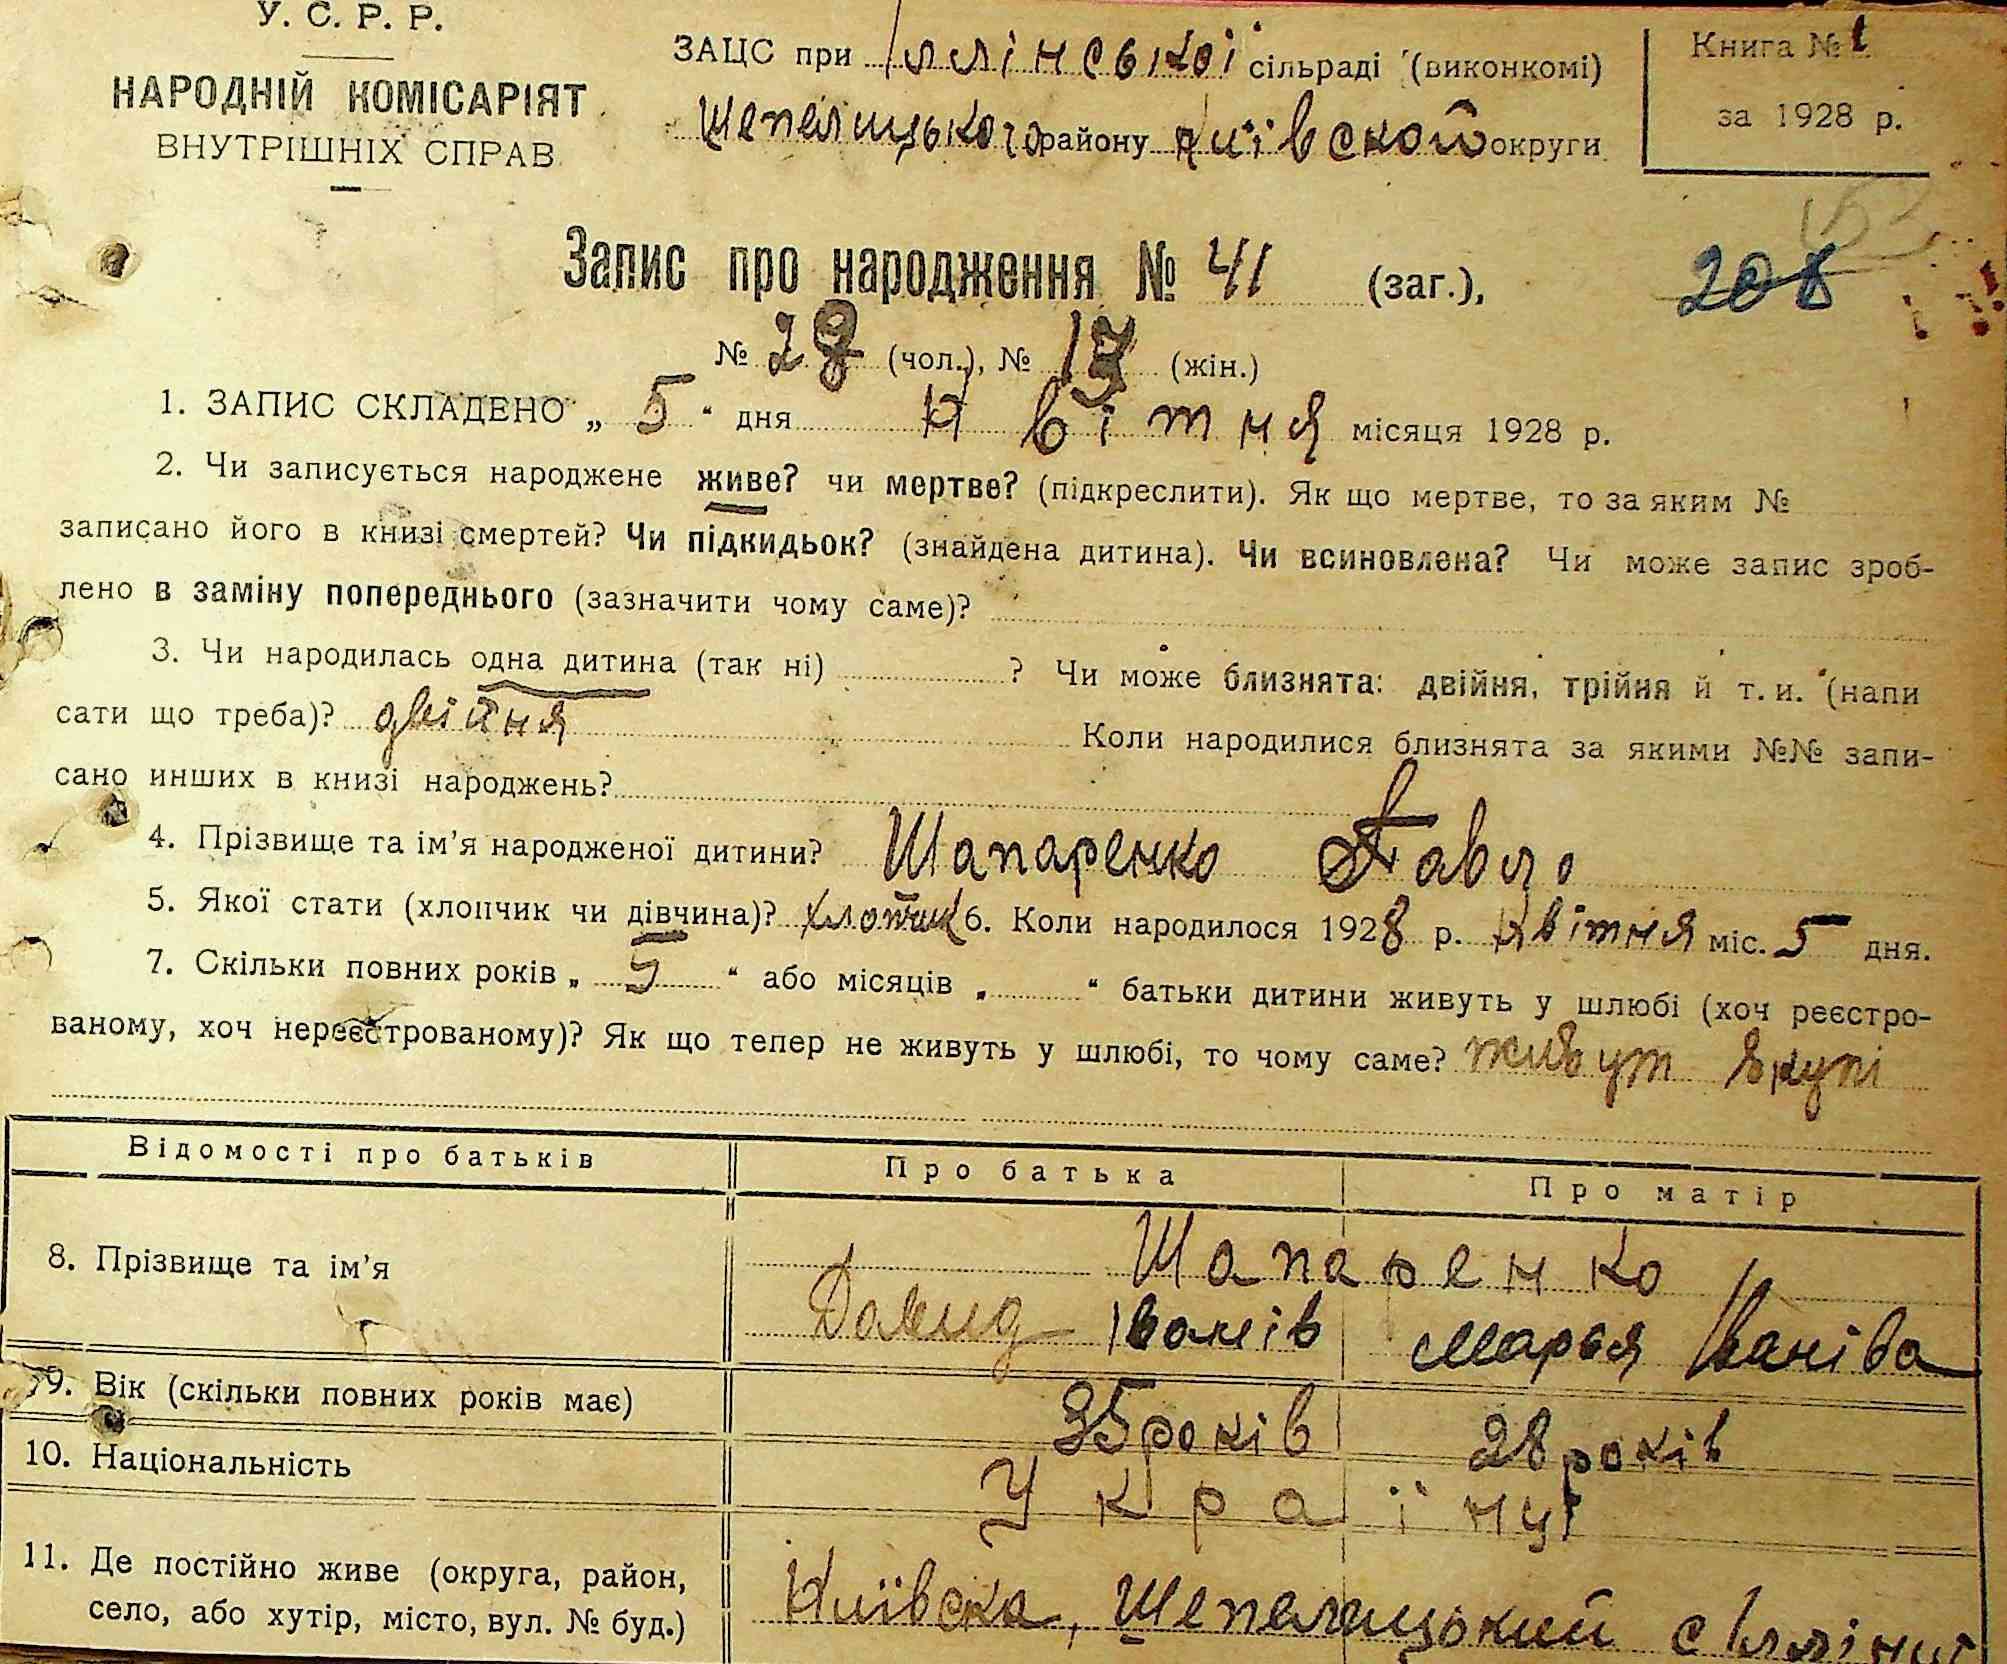 У. С. Р. Р.
НАРОДНІЙ КОМІСАРІЯТ
ВНУТРІШНІХ СПРАВ
ЗАЦС при Іллінської сільраді (виконкомі)
Шепелицького району Київской округи
Книга № 1
за 1928 р.
Запис про народження № 41 (заг.),
208
№ 28 (чол.), № 13 (жін.)
1. ЗАПИС СКЛАДЕНО „ 5 “ дня Квітня місяця 1928 р.
2. Чи записується народжене живе? чи мертве? (підкреслити). Як що мертве, то за яким №
записано його в книзі смертей? Чи підкидьок? (знайдена дитина). Чи всиновлена? Чи може запис зроб-
лено в заміну попереднього (зазначити чому саме)?
3. Чи народилась одна дитина (так ні) ? Чи може близнята: двійня, трійня й т. и. (напи
сати що треба)? двійня Коли народилися близнята за якими №№ запи-
сано инших в книзі народжень?
4. Прізвище та ім’я народженої дитини? Шапаренко Павло
5. Якої стати (хлопчик чи дівчина)? хлопчик 6. Коли народилося 1928 р. Квітня міс. 5 дня.
7. Скільки повних років „ 5 “ або місяців „ “ батьки дитини живуть у шлюбі (хоч реєстро-
ваному, хоч нереєстрованому)? Як що тепер не живуть у шлюбі, то чому саме? живут вкупі
Відомості про батьків Про батька Про матір
8. Прізвище та ім’я Шапаренко
Давид Іванів Марья Іваніва
9. Вік (скільки повних років має) 35 років 28 років
10. Національність Українці
11. Де постійно живе (округа, район,
село, або хутір, місто, вул. № буд.) Київска, Шепелицький с Іллінці